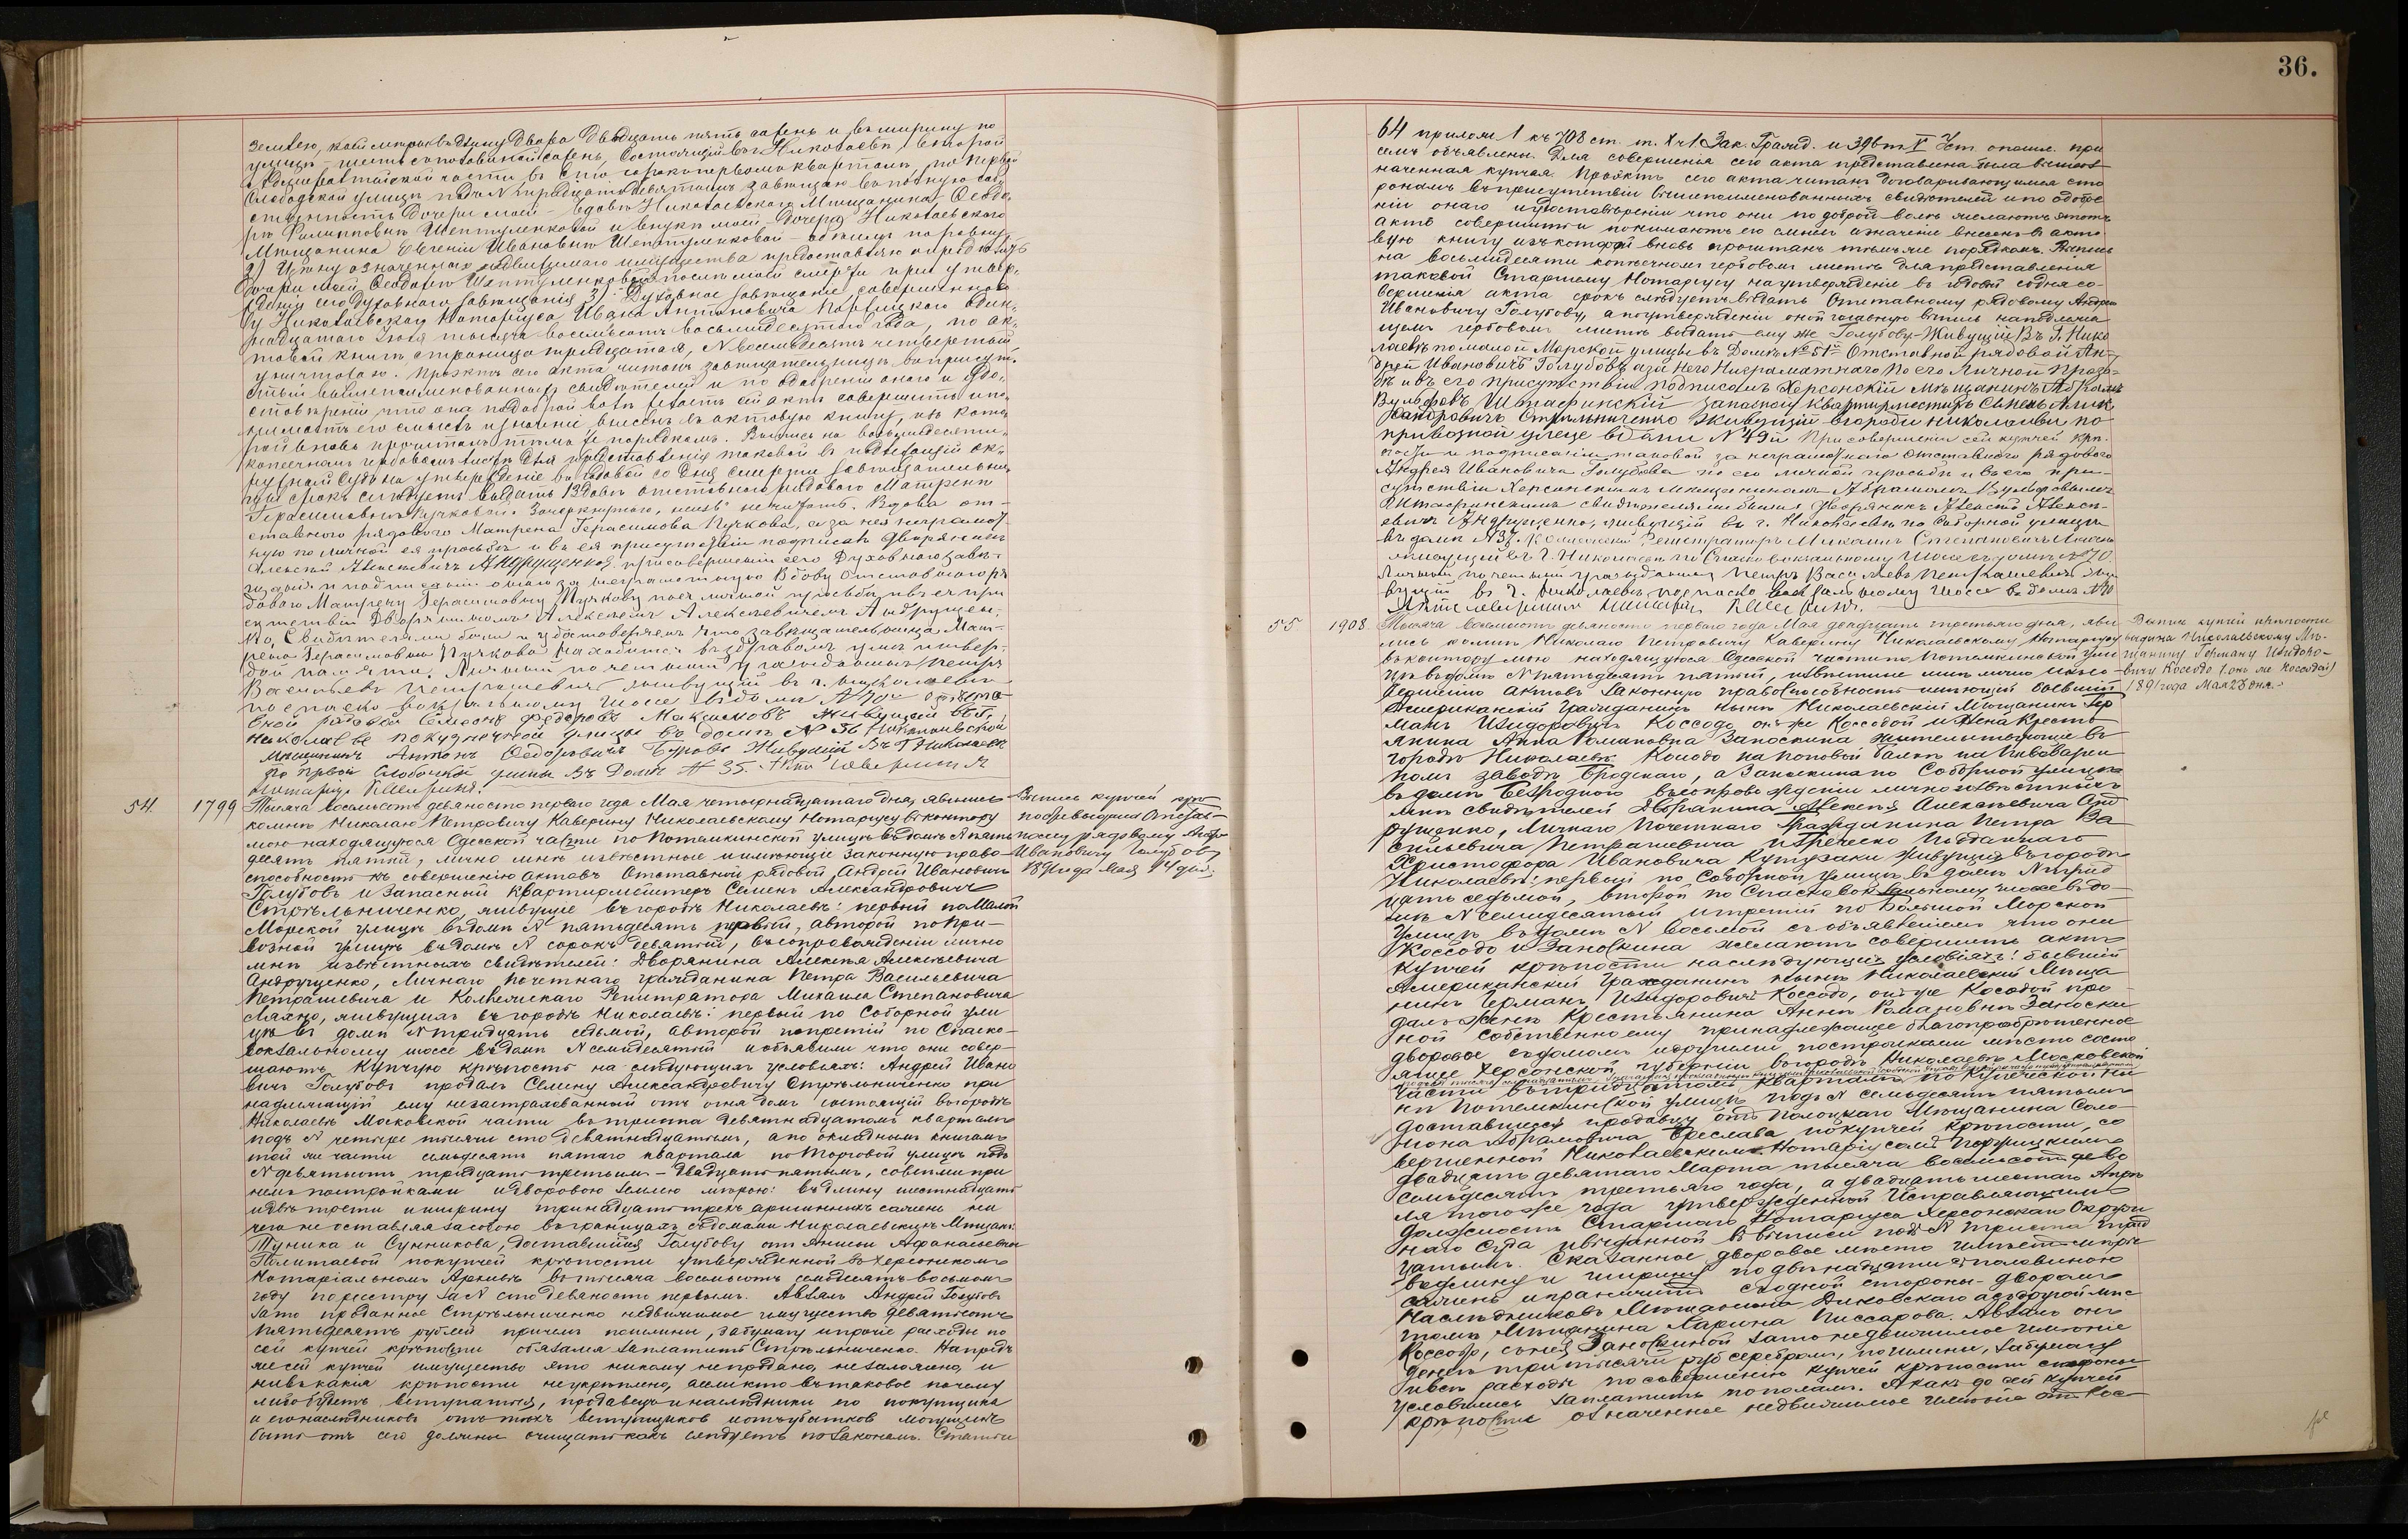 36.
землею, мерою въ длину двора двадцать пять сажень и въ ширину по
улицѣ шесть съ половиной сажень, состоящій въ г. Николаевѣ, второй
Адмиралтейской части въ сто сорокъ первомъ кварталѣ, по первой
Слободской улицѣ подъ № тридцать девятымъ завѣщаю въ полную соб-
ственность дочери моей – вдовѣ Николаевскаго Мѣщанина Ѳеодо-
рѣ Филипповнѣ Шептуленковой и внукѣ моей дочери Николаевскаго
Мѣщанина Евгеніи Ивановнѣ Шептуленковой – обѣимъ поровну.
2) Цѣну означеннаго недвижимаго имущества предоставляю опредѣлить
дочери моей Ѳеодорѣ Шептуленковой послѣ моей смерти при утвер-
жденіи сего духовнаго завѣщанія 3) Духовное завѣщаніе совершенное
у Николаевскаго Нотаріуса Ивана Антоновича Порфицкаго один-
надцатаго Іюля тысяча восемьсотъ восьмидесятаго года, по ак-
товой книгѣ страница тридцатая, № восемьдесятъ четвертый
уничтожаю. Проэктъ сего акта читанъ завѣщательницѣ въ присут-
ствіи вышепоименованныхъ свидѣтелей и по одобреніи онаго и удо-
стовѣреніи что она по доброй волѣ желаетъ сей актъ совершить и по-
нимаетъ его смыслъ и значеніе внесенъ въ актовую книгу, изъ кото-
рой вновь прочитанъ тѣмъ же порядкомъ. Выпись на восьмидесяти
копеечномъ гербовомъ листѣ для представленія таковой въ подлежащій Ок-
ружный Судъ на утвержденіе въ годовой со дня смерти завѣщательни-
цы срокъ слѣдуетъ выдать вдовѣ отставнаго рядоваго Матренѣ
Герасимовнѣ Пучковой. Зачеркнутаго, "лицъ" не читать. Вдова от-
ставнаго рядоваго Матрена Герасимова Пучкова, а за нея неграмот-
ную по личной ея просьбѣ и въ ея присутствіи подписалъ Дворянинъ
Алексѣй Алексѣевичъ Андрущенко, при совершеніи сего Духовнаго завѣ-
щанія и подписаніи онаго за неграмотную Вдову Отставнаго ря-
доваго Матрену Герасимовну Пучкову по ея личной просьбѣ и въ ея при
сутствіи Дворяниномъ Алексѣемъ Алексѣевичемъ Андрущен-
ко, Свидѣтелями были и удостовѣряемъ что завѣщательница Мат-
рена Герасимовна Пучкова находится въ здравомъ умѣ и твер-
дой памяти. Личный почетный гражданинъ Петръ
Васильевъ Петрашевичъ живущій въ г. Николаевѣ
по Спаско вокзальному шоссе въ домѣ № 70. Отста-
вной рядовой Семенъ Федоровъ Максимовъ живущій въ г.
Николаевѣ по кузнечной улицѣ въ домѣ № 36 Николаевской
Мѣщанинъ Антонъ Ѳедоровичъ Буровъ Живущій въ Г. Николаевѣ
По первой Слободской улицѣ въ Домѣ № 35. Актъ совершилъ
Нотаріусъ Каверинъ.
54. 1799 Тысяча восемьсотъ девяносто перваго года Мая четырнадцатаго дня, явились
ко мнѣ Николаю Петровичу Каверину Николаевскому Нотаріусу въ контору
мою находящуюся Одесской части по Потемкинской улицѣ въ домѣ № пять
десятъ пятый, лично мнѣ извѣстные и имѣющіе законную право-
способность къ совершенію актовъ Отставной рядовой Андрей Ивановичъ
Голубовъ и Запасный Квартирмейстеръ Семенъ Александровичъ
Стрѣльниченко живущіе въ городѣ Николаевѣ: первый по Малой
Морской улицѣ въ домѣ № пятьдесятъ первый, а второй по При-
возной улицѣ въ домѣ № сорокъ девятый, въ сопровожденіи лично
мнѣ извѣстныхъ свидѣтелей: Дворянина Алексѣя Алексѣевича
Андрущенко, Личнаго Почетнаго Гражданина Петра Васильевича
Петрашевича и Коллежскаго Регистратора Михаила Степановича
Ляхно, живущихъ въ городѣ Николаевѣ: первый по Соборной ули
цѣ въ домѣ № тридцать седьмой, а второй и третій по Спаско-
вокзальному шоссе въ домѣ № семидесятый и объявили что они совер-
шаютъ Купчую крѣпость на слѣдующихъ условіяхъ: Андрей Ивано
вичъ Голубовъ продалъ Семену Александровичу Стрѣльниченко при
надлежащій ему незастрахованный отъ огня домъ состоящій въ городѣ
Николаевѣ Московской части въ триста девятнадцатомъ кварталѣ
подъ № четыре тысячи сто девятнадцатымъ, а по окладнымъ книгамъ
той же части семьдесятъ пятаго квартала по Торговой улицѣ подъ
№ девятьсотъ тридцать третьимъ – двадцать пятымъ, со всѣми при
немъ постройками и дворовою землею мѣрою: въ длину шестнадцать
и двѣ трети и ширину тринадцать трехъ аршинныхъ сажень ни
чего не оставляя за собою въ границахъ съ домами Николаевскихъ Мѣщанъ
Туника и Сунникова, доставшійся Голубову отъ Анисьи Афанасьевны
Политаевой по купчей крѣпости утвержденной въ Херсонскомъ
Нотаріальномъ Архивѣ въ тысяча восемьсотъ семьдесятъ восьмомъ
году по реестру за № сто девяносто первымъ. А взялъ Андрей Голубовъ
за то проданное Стрѣльниченко недвижимое имущество девятьсотъ
пятьдесятъ рублей причемъ пошлины, за бумагу и прочіе расходы по
сей купчей крѣпости обязался заплатить Стрѣльниченко. На предъ
же сей купчей имущество это никому не продано, не заложено, и
ни въ какія крѣпости неукрѣплено, а если кто въ таковое почему
либо будетъ вступаться, продавецъ и наслѣдники его покупщика
и его наслѣдниковъ отъ тѣхъ вступщиковъ и отъ убытковъ могущихъ
быть отъ сего должны очищать какъ слѣдуетъ по законамъ. Статьи
Выпись купчей крѣ
пости выдана Отстав-
ному рядовому Андр.
Ивановичу Голубову
1891 года Мая 14 дня.
64 прилож 1 къ 708 ст. т. X ч 1 Зак. Гражд. и 396 т V Уст. о пошл. при
семъ объявлены. Для совершенія сего акта представлена была вышеоз-
наченная купчая. Проэктъ сего акта читанъ договаривающимся сто
ронамъ въ присутствіи вышепоименованныхъ свидѣтелей и по одобре
ніи онаго и удостовѣреніи что они по доброй волѣ желаютъ этотъ
актъ совершить и понимаютъ его смыслъ и значеніе внесенъ въ акто
вую книгу изъ которой вновь прочитанъ тѣмъ же порядкомъ. Выпись
на восьмидесяти копѣечномъ гербовомъ листѣ для представленія
таковой Старшему Нотаріусу на утвержденіе въ годовой со дня со-
вершенія акта срокъ слѣдуетъ выдать Отставному рядовому Андрею
Ивановичу Голубову, а по утвержденіи оной главную выпись на подлежа
щемъ гербовомъ листѣ выдать ему же Голубову. Живущій въ Г. Нико
лаевѣ по малой Морской улицѣ въ Домѣ № 51й Отставной рядовой Ан-
дрей Ивановичъ Голубовъ а за Него Неграматнаго По его Личной Прозь-
бѣ и въ его присутствіи подписалъ Херсонскій Мѣщанинъ Абрамъ
Вульфовъ Штаеринскій Запасной Квартирмистръ Семенъ Алек-
сандровичъ Стрельниченко Живущій вгороди николаиви по
привозной улеце вдоми №49й При совершеніи сей купчей крѣ-
пости и подписаніи таковой за неграмотнаго отставнаго рядового
Андрея Ивановича Голубова по его личной просьбѣ и въ его при-
сутствіи Херсонскимъ мѣщаниномъ Абрамомъ Вульфовымъ
Штаеринскимъ свидѣтелями были: Дворянинъ Алексѣй Алексѣ-
евичъ Андрущенко, живущій въ г. Николаевѣ по Соборной улицѣ
въ домѣ № 37. Коллежскій Регистраторъ Михаилъ Степановичъ Ляхно
живущій въ г. Николаевѣ по Спаско вокзальному шоссе въ домѣ № 70.
Личный почетный гражданинъ Петръ Васильевъ Петрашевичъ жи
вущій въ г. Николаевѣ по Спаско вокзальному шоссе въ домѣ № 70
Актъ совершилъ Нотаріусъ Каверинъ.
55 1908 Тысяча восемьсотъ девяносто перваго года Мая двадцать третьяго дня, яви
лись ко мнѣ Николаю Петровичу Каверину Николаевскому Нотаріусу
въ контору мою находящуюся Одесской части по Потемкинской ули
цѣ въ домѣ № пятьдесятъ пятый, извѣстные мнѣ лично и къ со
вершенію актовъ законную правоспособность имѣющій бывшій
Американскій Гражданинъ нынѣ Николаевскій Мѣщанинъ Гер
манъ Изидоровичъ Коссодо, онъ же Коссодой и Жена Кресть
янина Анна Романовна Заноскина жительствующіе въ
городѣ Николаевѣ Косодо на поповой балкѣ на Пивоварен
номъ заводѣ Бродскаго, а Заноскина по Соборной улицѣ
въ домѣ Безроднаго въ сопровожденіи лично извѣстныхъ
мнѣ свидѣтелей Дворянина Алексѣя Алексѣевича Анд
рущенко, Личнаго Почетнаго Гражданина Петра Ва
сильевича Петрашевича и Греческо Подданнаго
Христофора Ивановича Кутузаки живущихъ въ городѣ
Николаевѣ: первый по Соборной улицѣ въ домѣ № трид
цать седьмой, второй по Спасковокзальному шоссе въ до-
мѣ № семидесятый и третій по Большой Морской
улицѣ въ домѣ № восьмой съ объявленіемъ что они
Коссодо и Заноскина желаютъ совершить актъ
купчей крѣпости на слѣдующихъ условіяхъ: бывшій
Американскій Гражданинъ нынѣ Николаевскій Мѣща
нинъ Германъ Изидоровичъ Коссодо, онъ же Косодой про
далъ Женѣ Крестьянина Аннѣ Романовнѣ Заноски
ной собственно ему принадлежащее благопріобрѣтенное
дворовое съ домомъ и другими постройками мѣсто состо
ящее Херсонской губерніи въ городѣ Николаевѣ Московской
части въ тридцатомъ кварталѣ по Купеческой ны
нѣ Потемкинской улицѣ подъ № семьдесятъ пятымъ
доставшееся продавцу отъ Полоцкаго Мѣщанина Соло
мона Абрамовича Бреслава по купчей крѣпости, со
вершенной Николаевскимъ Нотаріусомъ Порфицкимъ
двадцать девятаго Марта тысяча восемьсотъ дево
семьдесятъ третьяго года, а двадцать шестаго Апрѣ
ля того же года утвержденной Исправляющимъ
должность Старшаго Нотаріуса Херсонскаго Окруж
наго Суда и выданной въ выписи подъ № триста трид
цатымъ. Сказанное дворовое мѣсто имѣетъ мѣры
въ длину и ширину по двѣнадцати съ половиною
сажень и граничитъ съ одной стороны – дворомъ
Наслѣдниковъ Мѣщанина Диковскаго а съ другой мѣс
томъ Мѣщанина Ларина Писсарова. А взялъ онъ
Коссодо, съ нея Заноскиной за то недвижимое имѣніе
денегъ три тысячи руб серебромъ, пошлины, за бумагу
и всѣ расходы по совершенію купчей крѣпости стороны
условились заплатить пополамъ. А какъ до сей купчей
крѣпости означенное недвижимое имѣніе отъ Кос-
Выпись купчей крѣпости
выдана Николаевскому Мѣ-
щанину Герману Изидоро-
вичу Косодо (онъ же Коссодой)
1891 года Мая 23 дня.